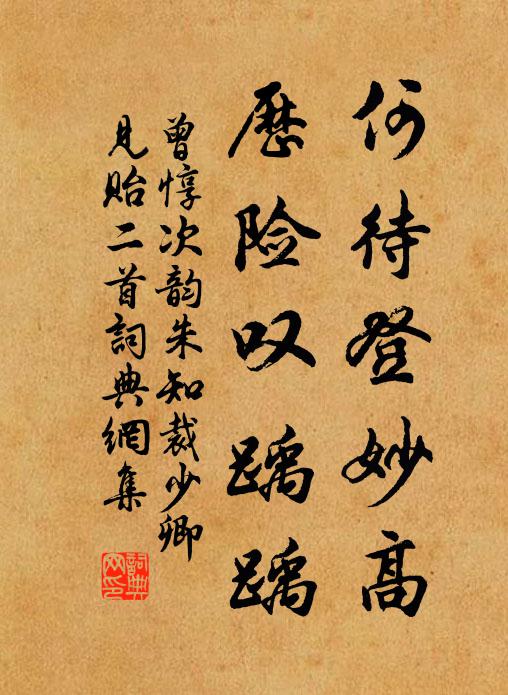 何待登妙高
歷险叹踽踽
曾惇次韵朱知裁少卿
見贻二首詞典網集
詞典网印